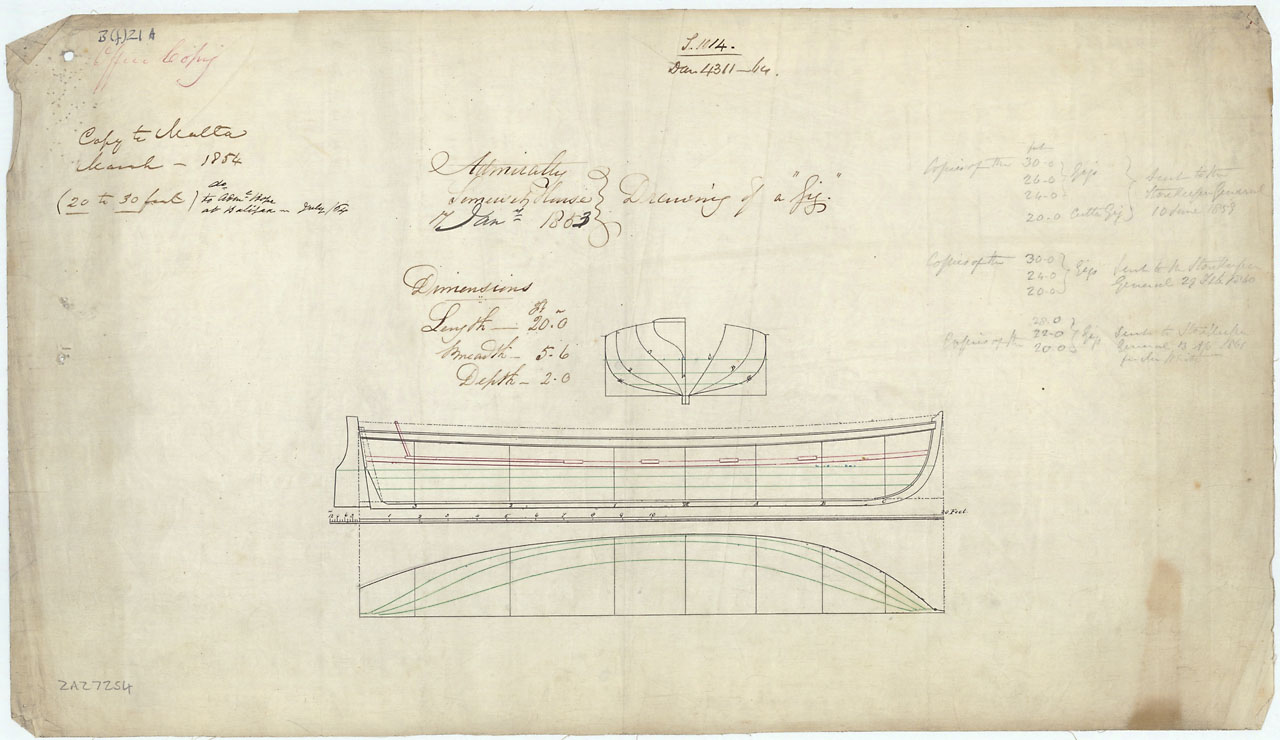 B(4)21A
Office Copy
S.1114.
Dan 4311—64.
Copy to Malta
March — 1854
(20 to 30 feet) do to Adm.l Hope
at Halifax — July /64
Admiralty
Somerset House
17 Jan.y 1853
Drawing of a "Gig".
Dimensions
ft in
Length — 20.0
Breadth — 5.6
Depth — 2.0
feet
Copies of the 30.0
26.0 Gigs
24.0
20.0 Cutter Gig
Sent to the
Storekeeper General
10 June 1859
Copies of the 30.0
24.0 Gigs
20.0
Sent to the Storekeeper
General
28.0
Copies of the 22.0 Gigs
20.0
Sent to Storekeeper
General
1 2 3 4 5 6 7 8 9 10
20 Feet
ZAZ7254